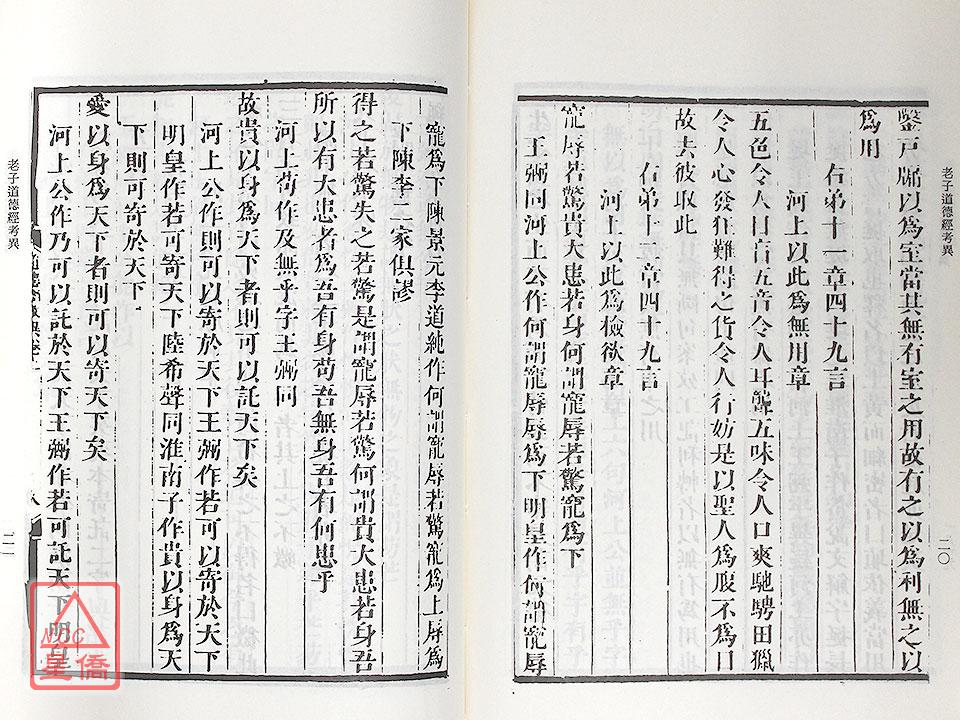 老子道德經考異
二〇
鑿戶牖以爲室當其無有室之用故有之以爲利無之以
爲用
右弟十一章四十九言
河上以此爲無用章
五色令人目盲五音令人耳聾五味令人口爽馳騁田獵
令人心發狂難得之貨令人行妨是以聖人爲腹不爲目
故去彼取此
右弟十二章四十九言
河上以此爲檢欲章
寵辱若驚貴大患若身何謂寵辱若驚寵爲下
王弼同河上公作何謂寵辱辱爲下明皇作何謂寵辱
寵爲下陳景元李道純作何謂寵辱若驚寵爲上辱爲
下陳李二家俱謬
得之若驚失之若驚是謂寵辱若驚何謂貴大患若身吾
所以有大患者爲吾有身苟吾無身吾有何患乎
河上苟作及無乎字王弼同
故貴以身爲天下者則可以託天下矣
河上公作則可以寄於天下王弼作若可以寄於天下
明皇作若可寄天下陸希聲同淮南子作貴以身爲天
下則可寄於天下
愛以身爲天下者則可以寄天下矣
河上公作乃可以託於天下王弼作若可託天下明皇
八
老子道德經考異
二一
NMC
星僑